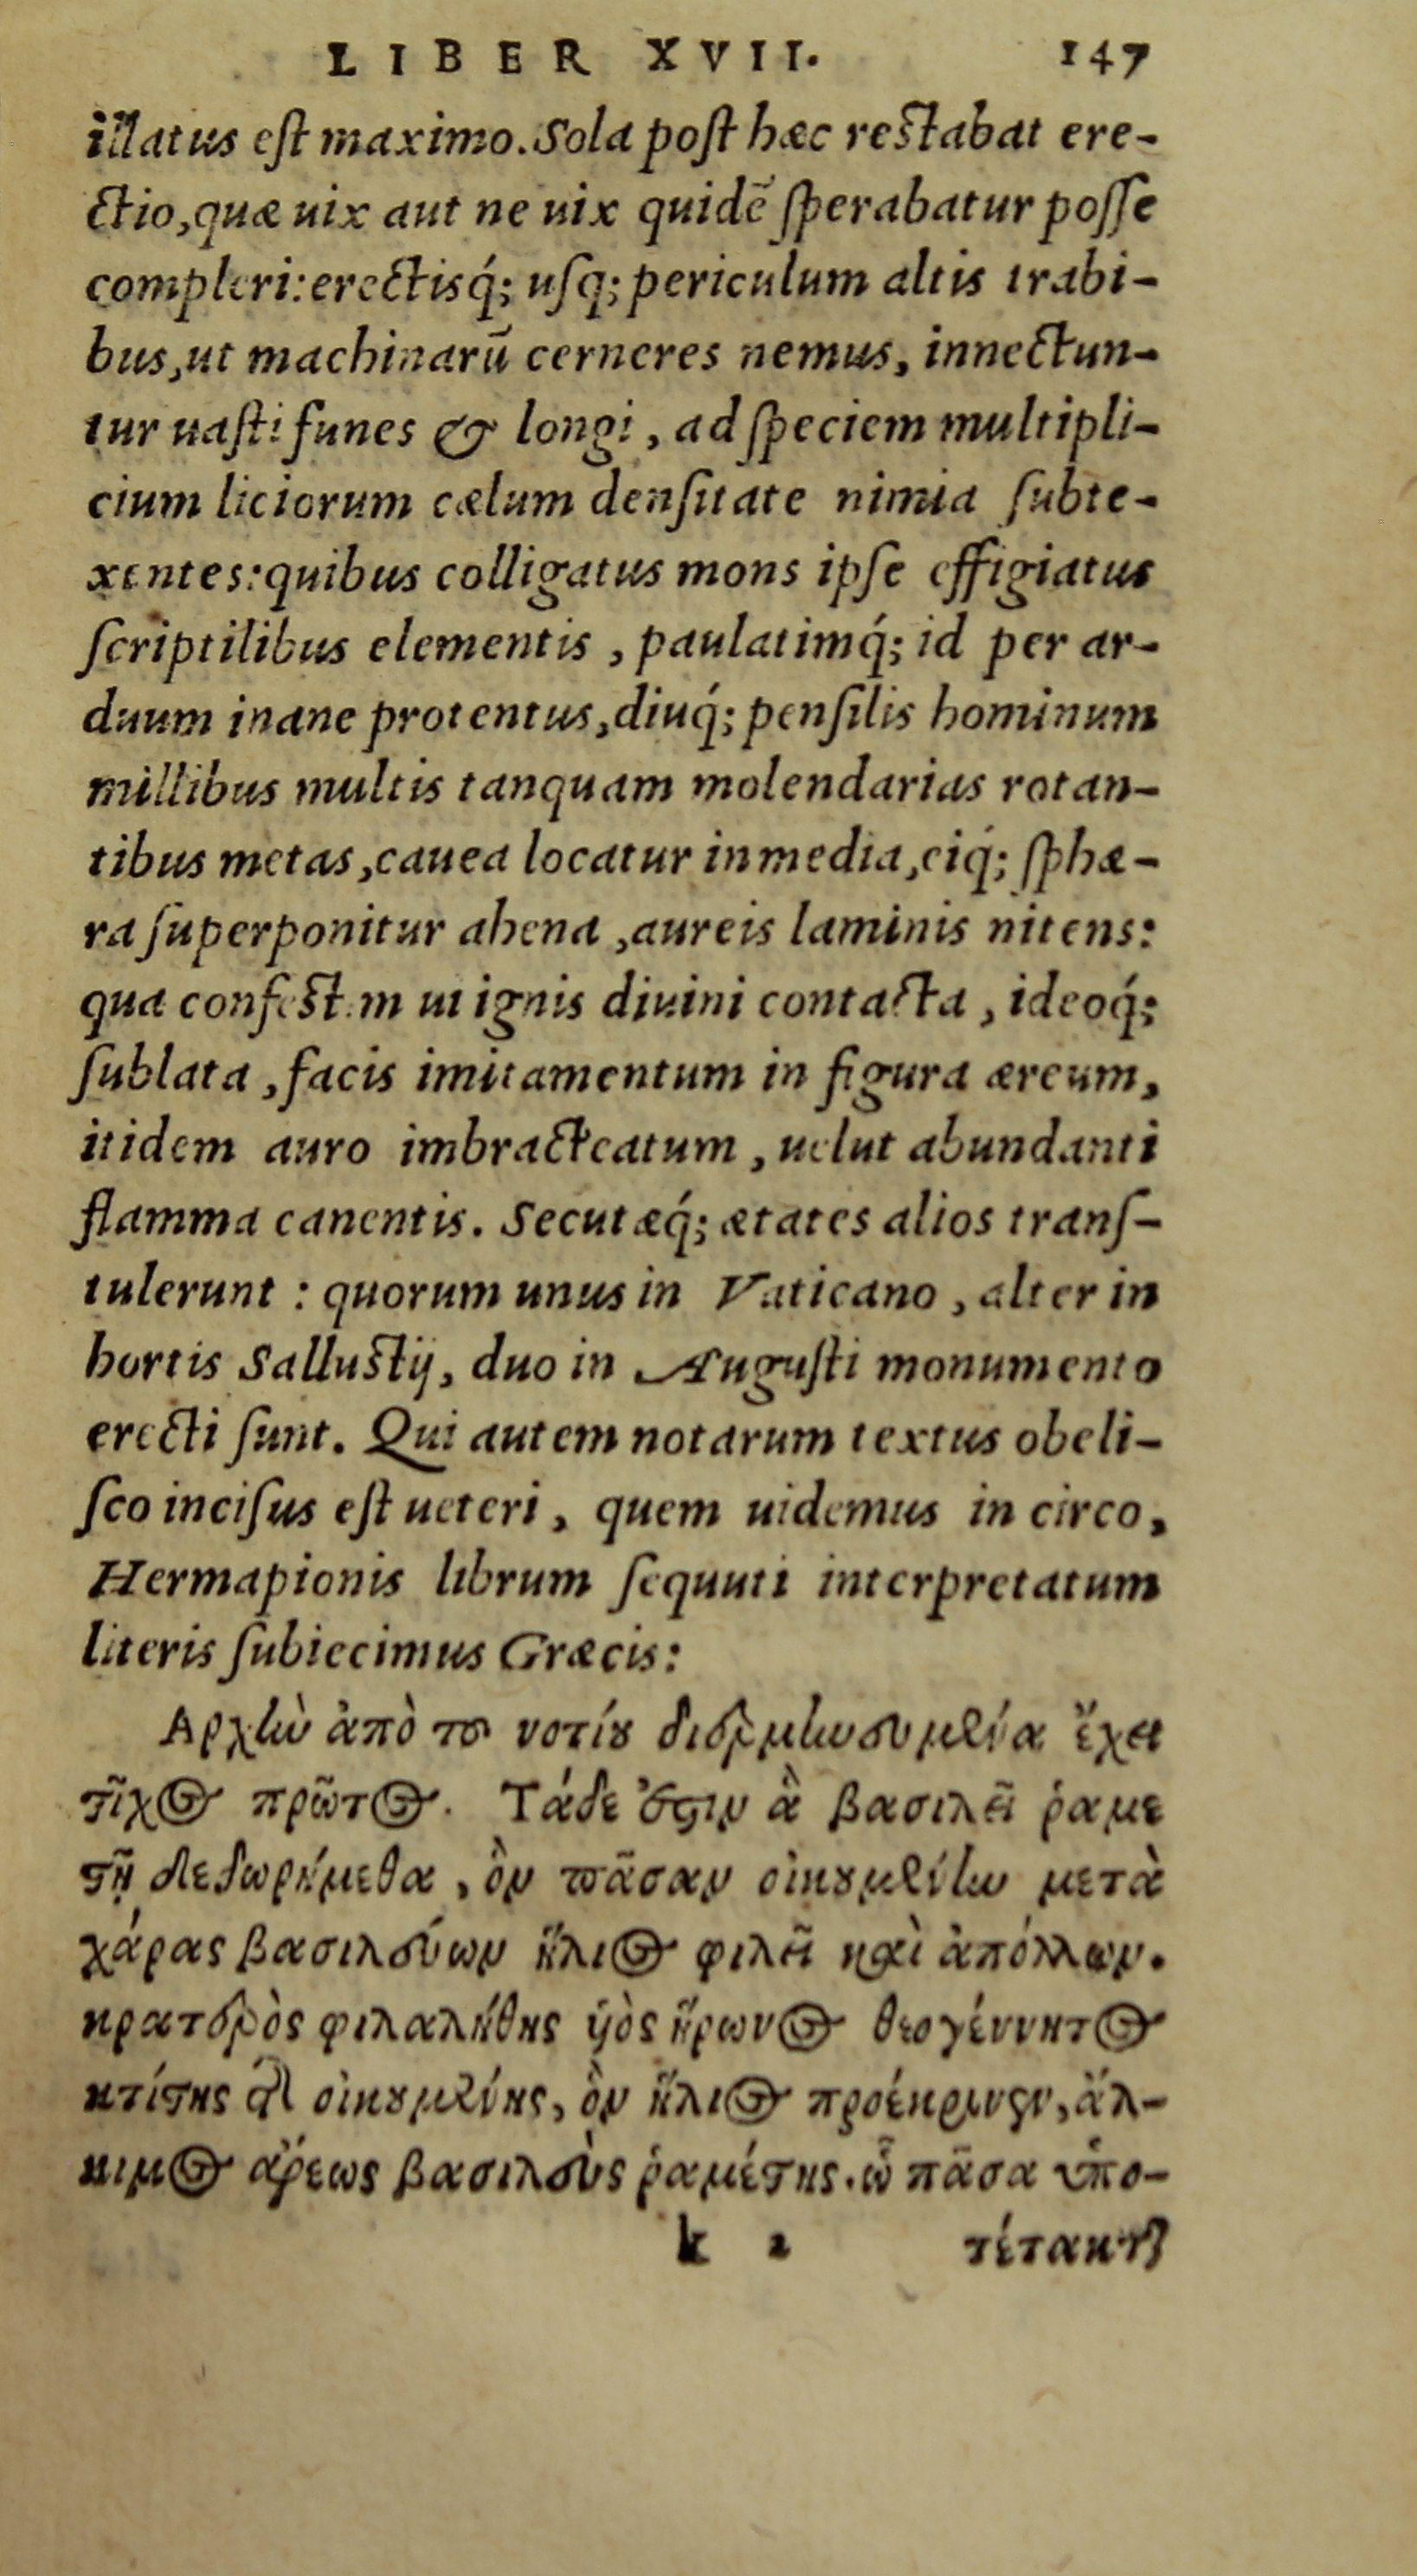 LIBER XVII. 147
illatus eſt maximo. Sola poſt hæc reſtabat ere-
ctio, quæ uix aut ne uix quidē ſperabatur poſſe
compleri: erectisq́; uſq; periculum altis trabi-
bus, ut machinarū cerneres nemus, innectun-
tur uaſti funes & longi, ad ſpeciem multipli-
cium liciorum cælum denſitate nimia ſubte-
xentes: quibus colligatus mons ipſe effigiatus
ſcriptilibus elementis, paulatimq́; id per ar-
duum inane protentus, diuq́; penſilis hominum
millibus multis tanquam molendarias rotan-
tibus metas, cauea locatur in media, eiq́; ſphæ-
ra ſuperponitur ahena, aureis laminis nitens:
qua confeſtim ui ignis diuini contacta, ideoq́;
ſublata, facis imitamentum in figura æreum,
itidem auro imbracteatum, uelut abundanti
flamma canentis. Secutæq́; ætates alios tranſ-
tulerunt: quorum unus in Vaticano, alter in
hortis Salluſtij, duo in Auguſti monumento
erecti ſunt. Qui autem notarum textus obeli-
ſco inciſus eſt ueteri, quem uidemus in circo,
Hermapionis librum ſequuti interpretatum
literis ſubiecimus Græcis:
Αρχὴν ἀπὸ τοῦ νοτίου διερμηνευμένα ἔχει
ϛῖχος πρῶτος. Τάδε ἐϛιν ἃ βασιλεῖ ῥαμε
ϛῃ δεδωρήμεθα, ὃν πᾶσαν οἰκουμένην μετὰ
χάρας βασιλεύων ἥλιος φιλεῖ καὶ ἀπόλλων.
κρατερὸς φιλαλήθης ὑὸς ἥρωνος θεογέννητος
κτίϛης τῆς οἰκουμένης, ὃν ἥλιος προέκρινεν, ἄλ-
κιμος ἄρεως βασιλεὺς ῥαμέϛης. ᾧ πᾶσα ὑπο-
k 2 τέτακται